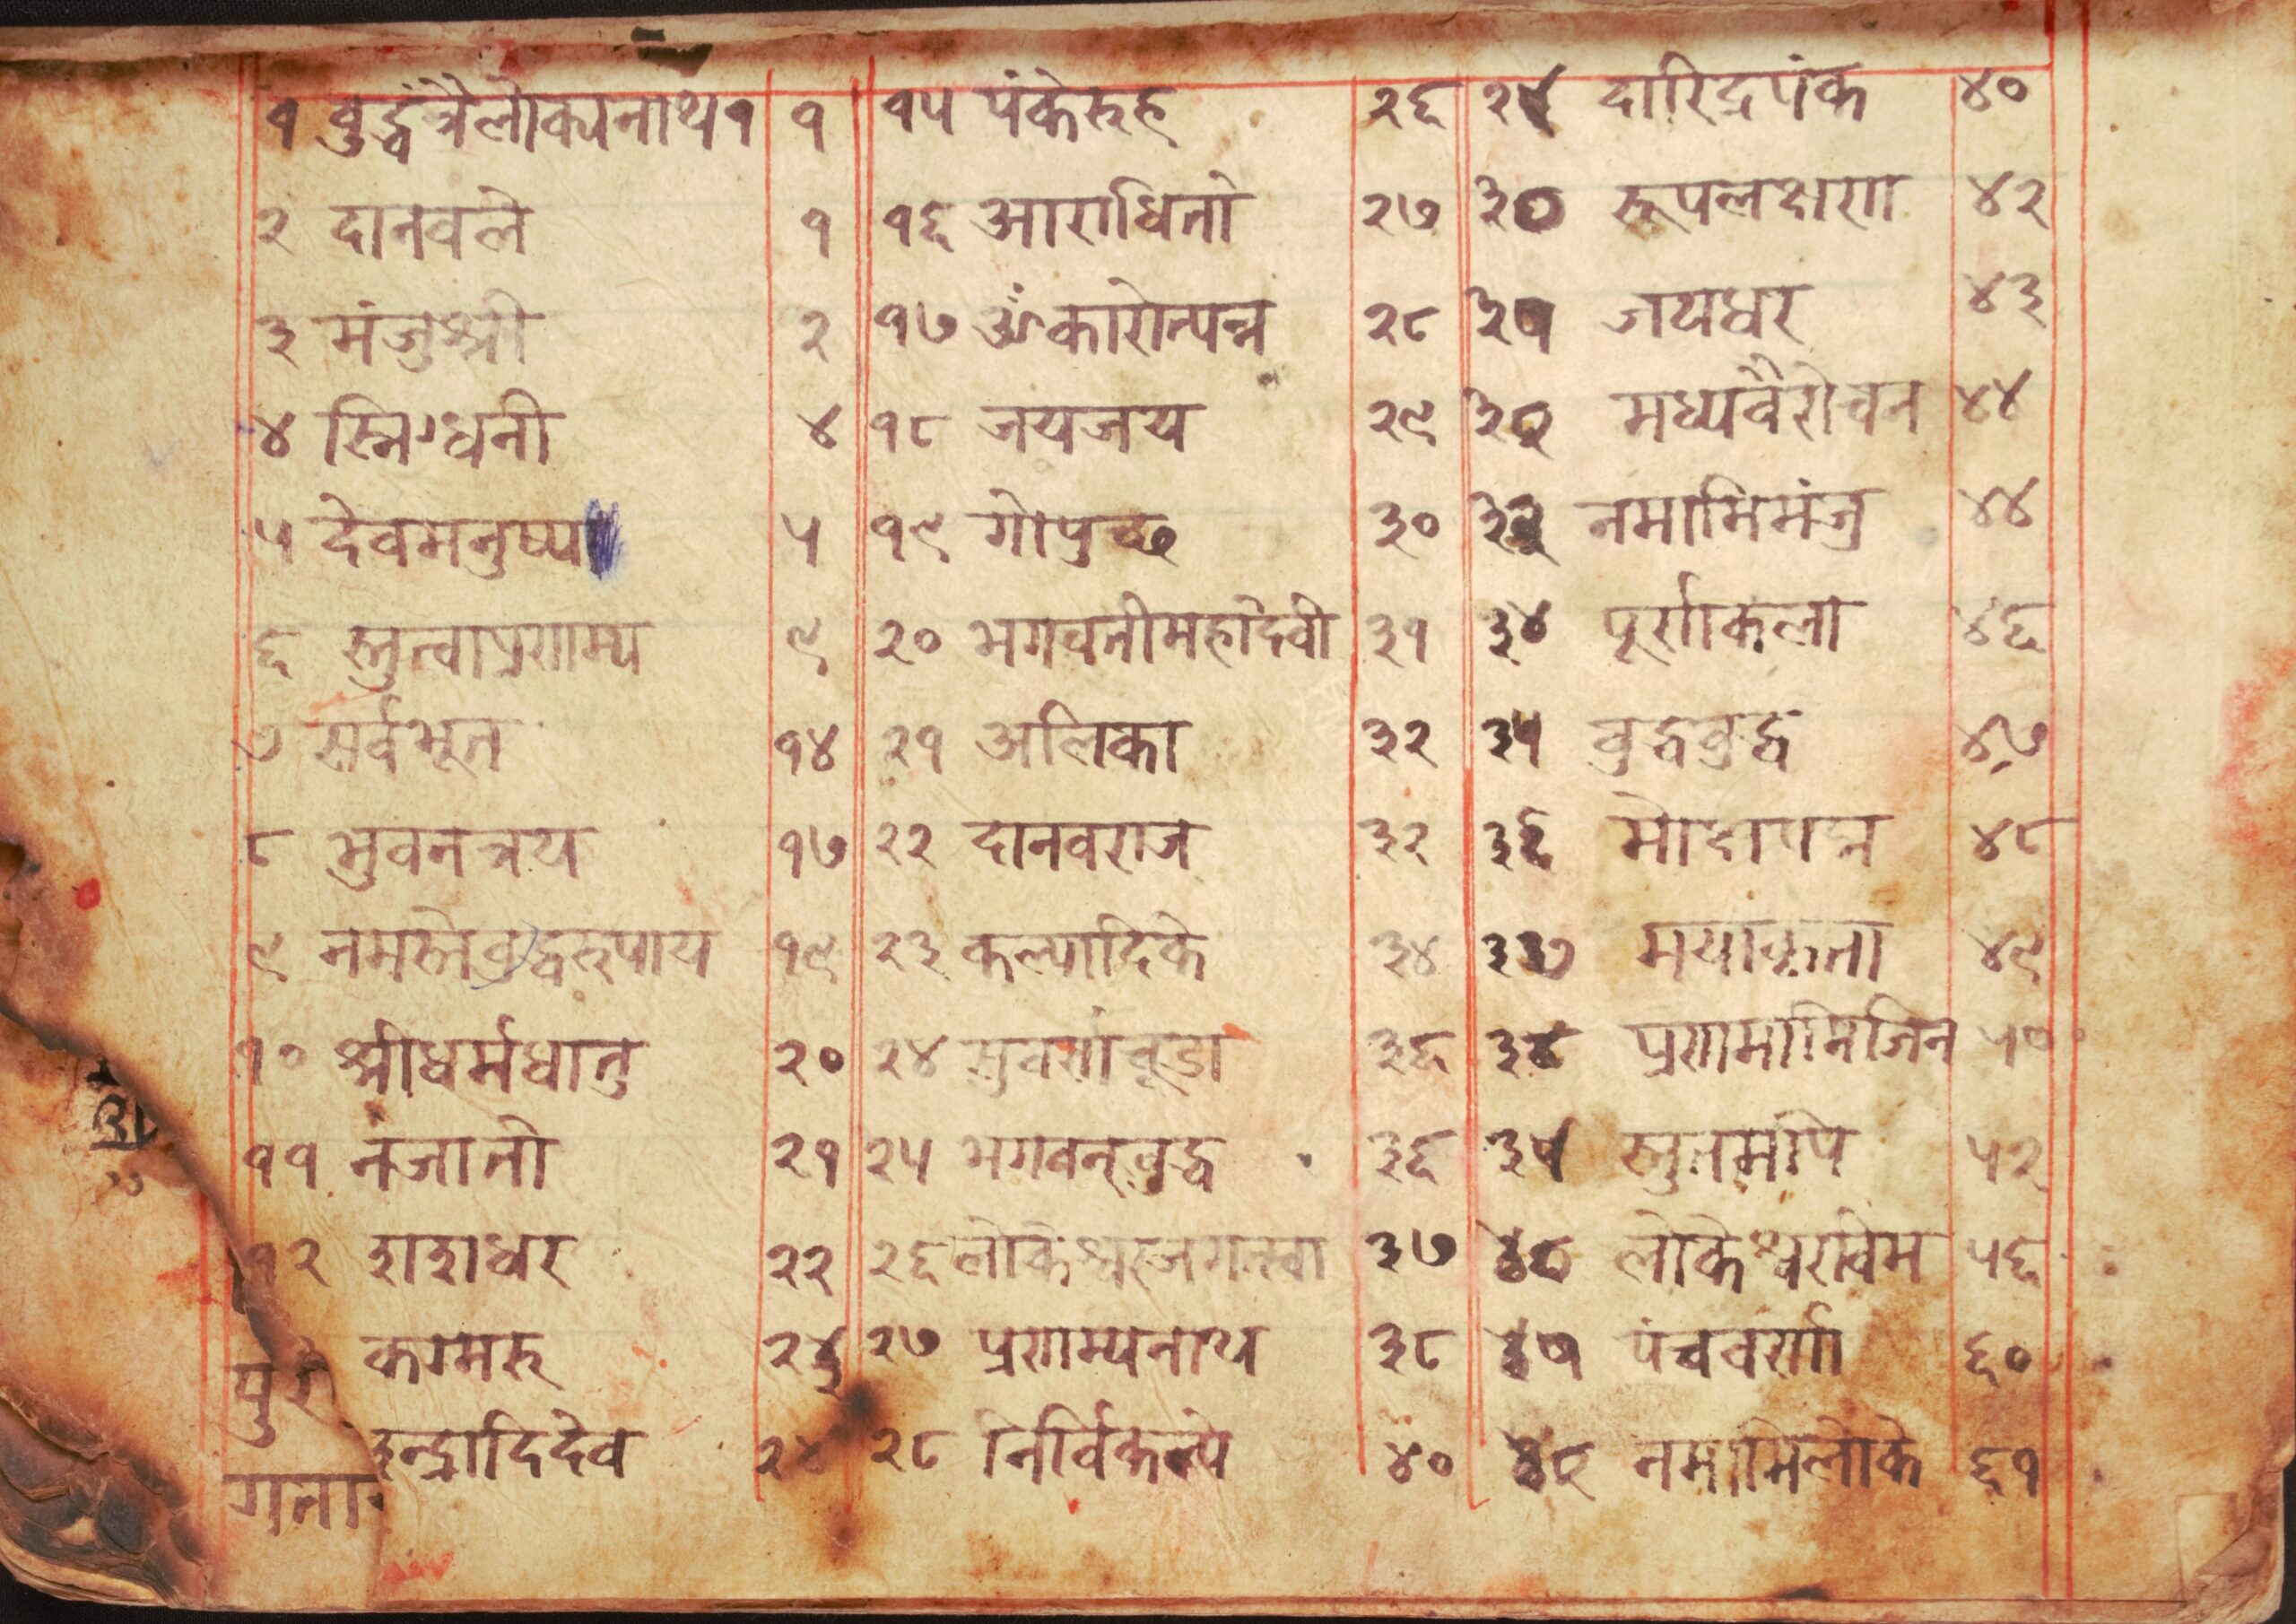 १ वुद्धंत्रैलोक्यनाथ१ १
२ दानवले १
३ मंजुश्री २
४ स्निग्धनी ४
५ देवमनुष्य ५
६ स्तुत्वाप्रणाम्य ९
७ सर्वभूत १४
८ भुवनत्रय १७
९ नमस्तेवुद्धरुपाय १९
१० श्रीधर्मधातु २०
११ नजातो २१
१२ शशधर २२
कामरु २३
इन्द्रादिदेव २४
पु
गता
१५ पंकेरुह २६
१६ आराधितो २७
१७ ॐकारोत्पन्न २८
१८ जयजय २९
१९ गोपुच्छ ३०
२० भगवतीमहादेवी ३१
२१ अलिका ३२
२२ दानवराज ३२
२३ कल्पादिके ३४
२४ सुवर्णचूडा ३६
२५ भगवन्वुद्ध ३६
२६ लोकेश्वरजगतत्वा ३७
२७ प्रणाम्यनाथ ३८
२८ निर्विकल्पे ४०
२९ दारिद्रपंक ४०
३० रूपलक्षण ४२
३१ जयधर ४३
३२ मध्यवैरोचन ४४
३३ नमामिमंजु ४४
३४ पूर्णाकला ४६
३५ वुद्धवुद्ध ४७
३६ मोदापन्न ४८
३७ मयाकृता ४९
३८ प्रणामामिजिन ५०
३९ स्तुतमपि ५२
४० लोकेश्वरावेम ५६
४१ पंचवर्ण ६०
४२ नमामिलोके ६१